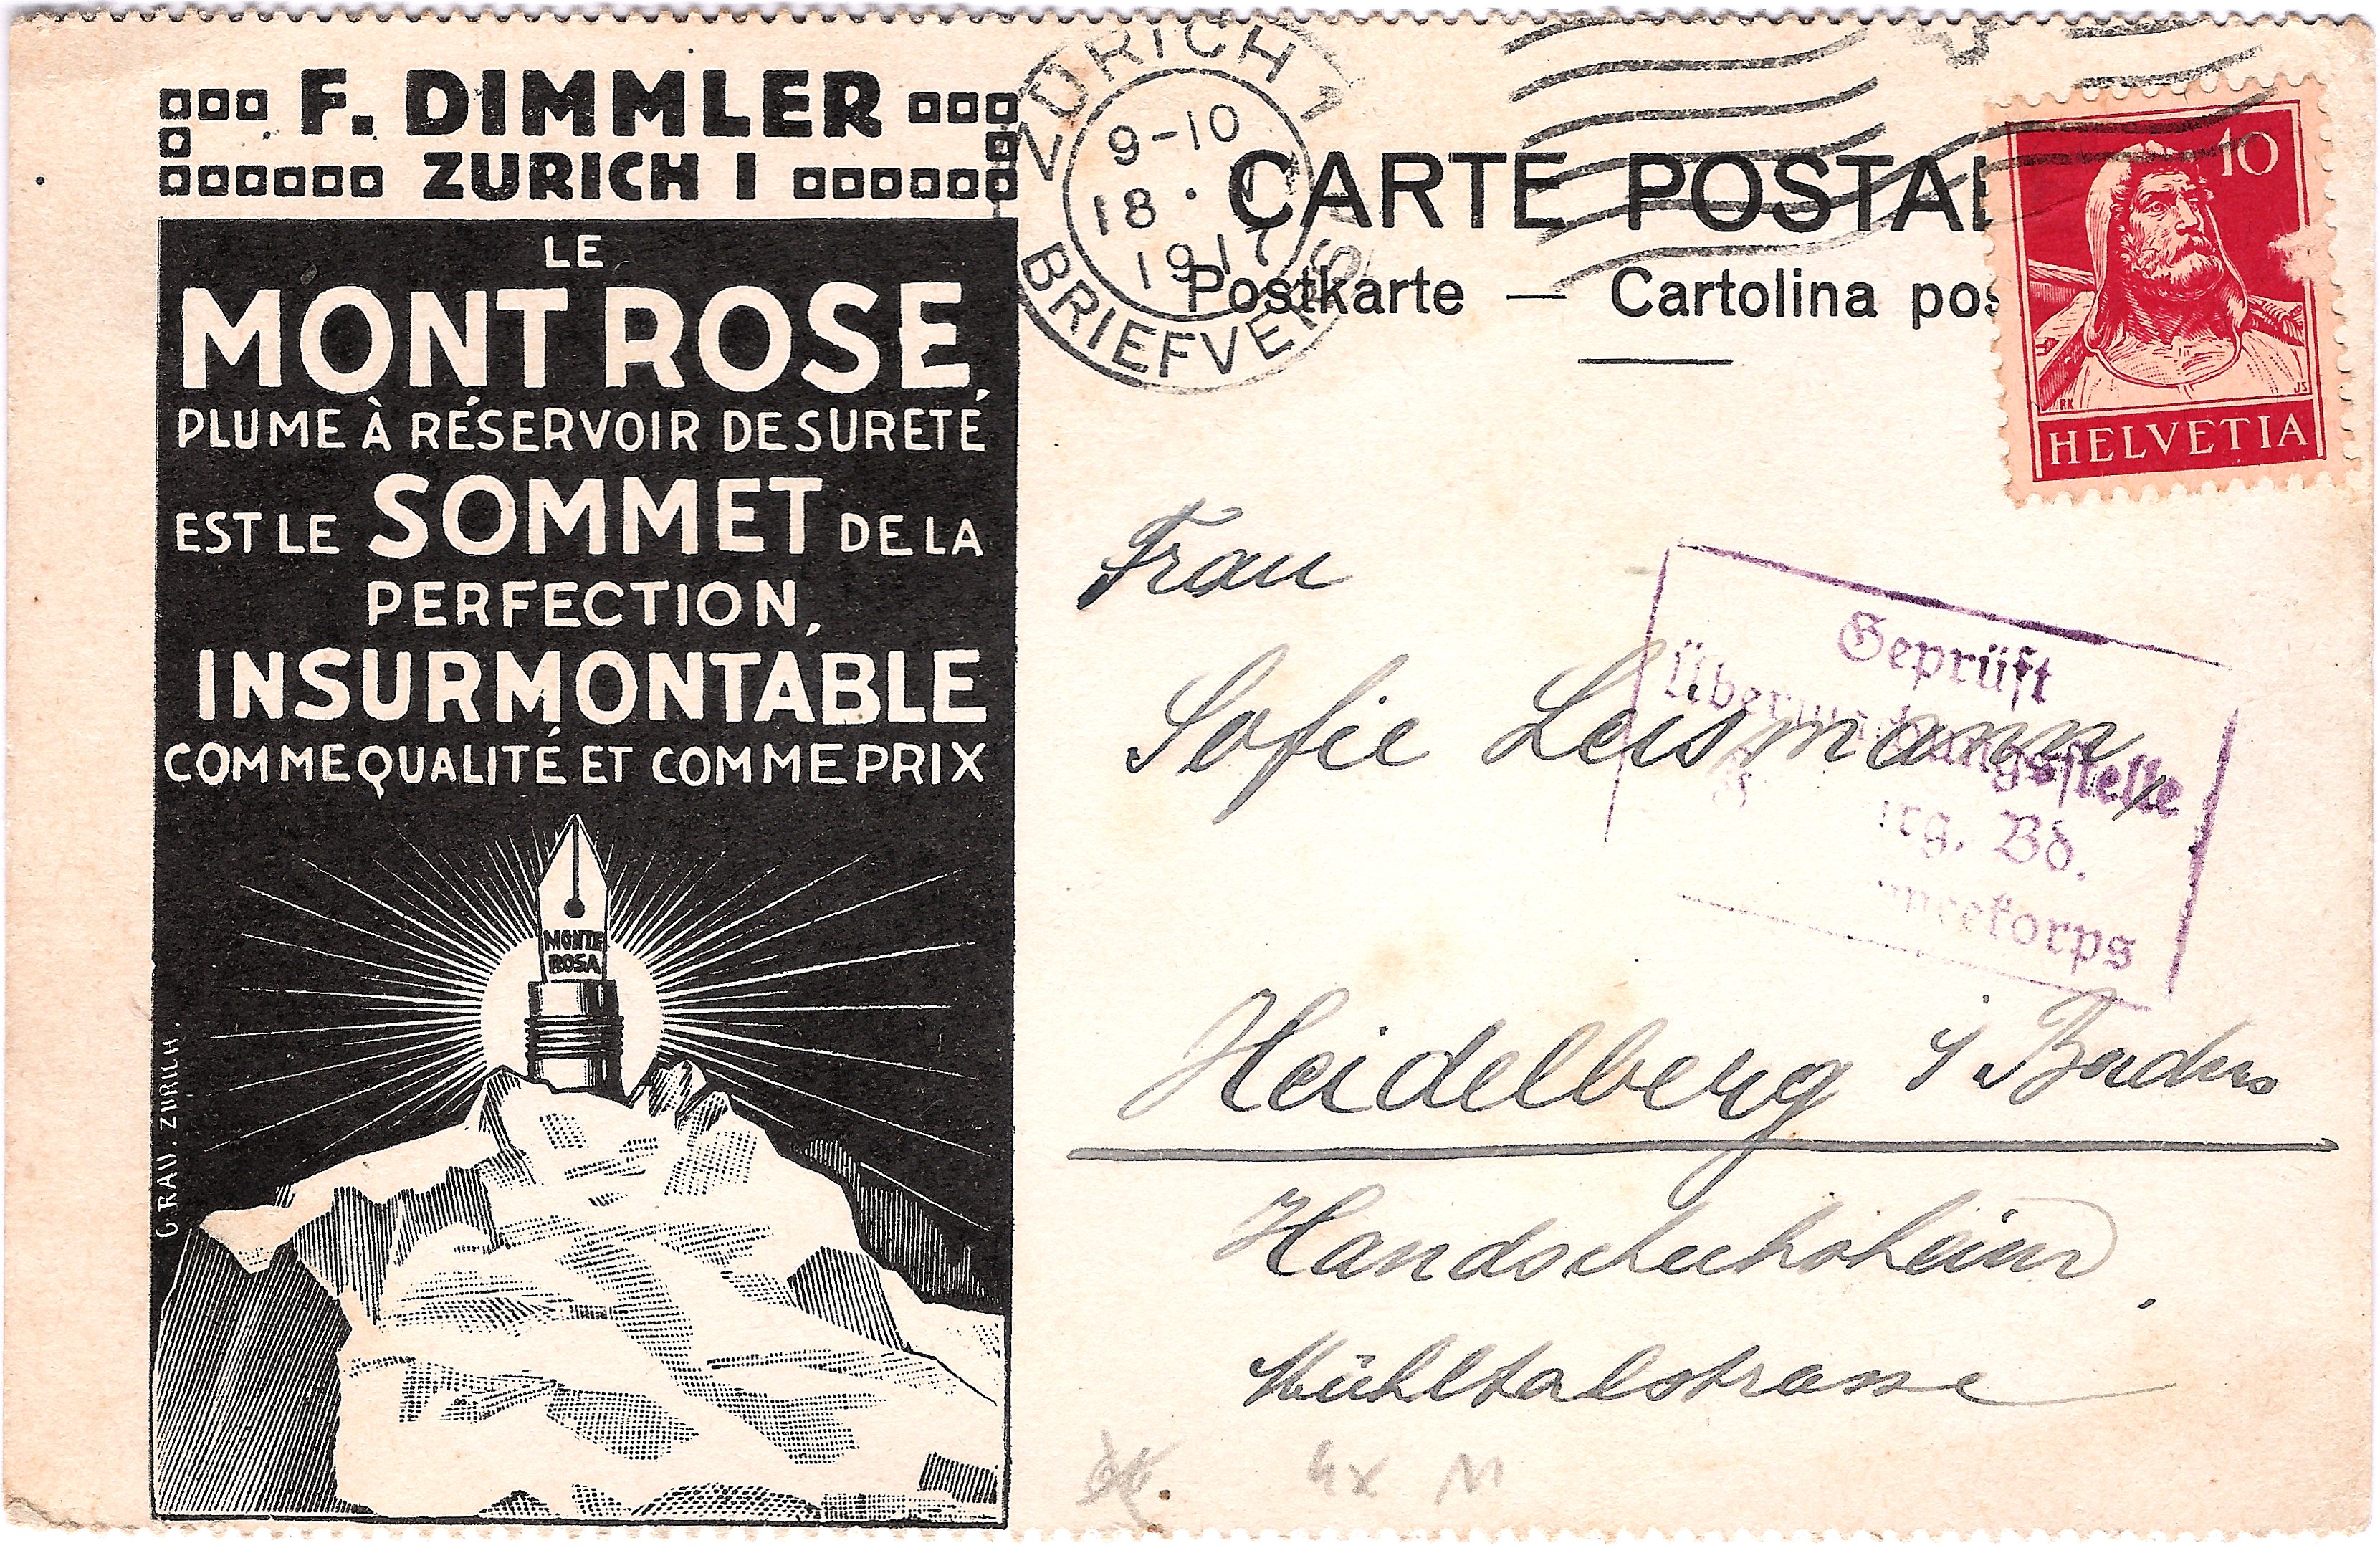 F. DIMMLER
ZURICH I
LE
MONT ROSE,
PLUME À RÉSERVOIR DE SURETÉ
EST LE SOMMET DE LA
PERFECTION,
INSURMONTABLE
COMME QUALITÉ ET COMME PRIX
MONTE
ROSA
G. RAU. ZÜRICH.
ZÜRICH 1
9-10
18.
1917
BRIEFVERS
CARTE POSTAL
Postkarte — Cartolina pos
10
RK JS
HELVETIA
Geprüft
Überwachungsstelle
Bd.
Frau
Sofie Leismann,
Heidelberg i/Baden
Handschuhsheim,
Mühltalstrasse